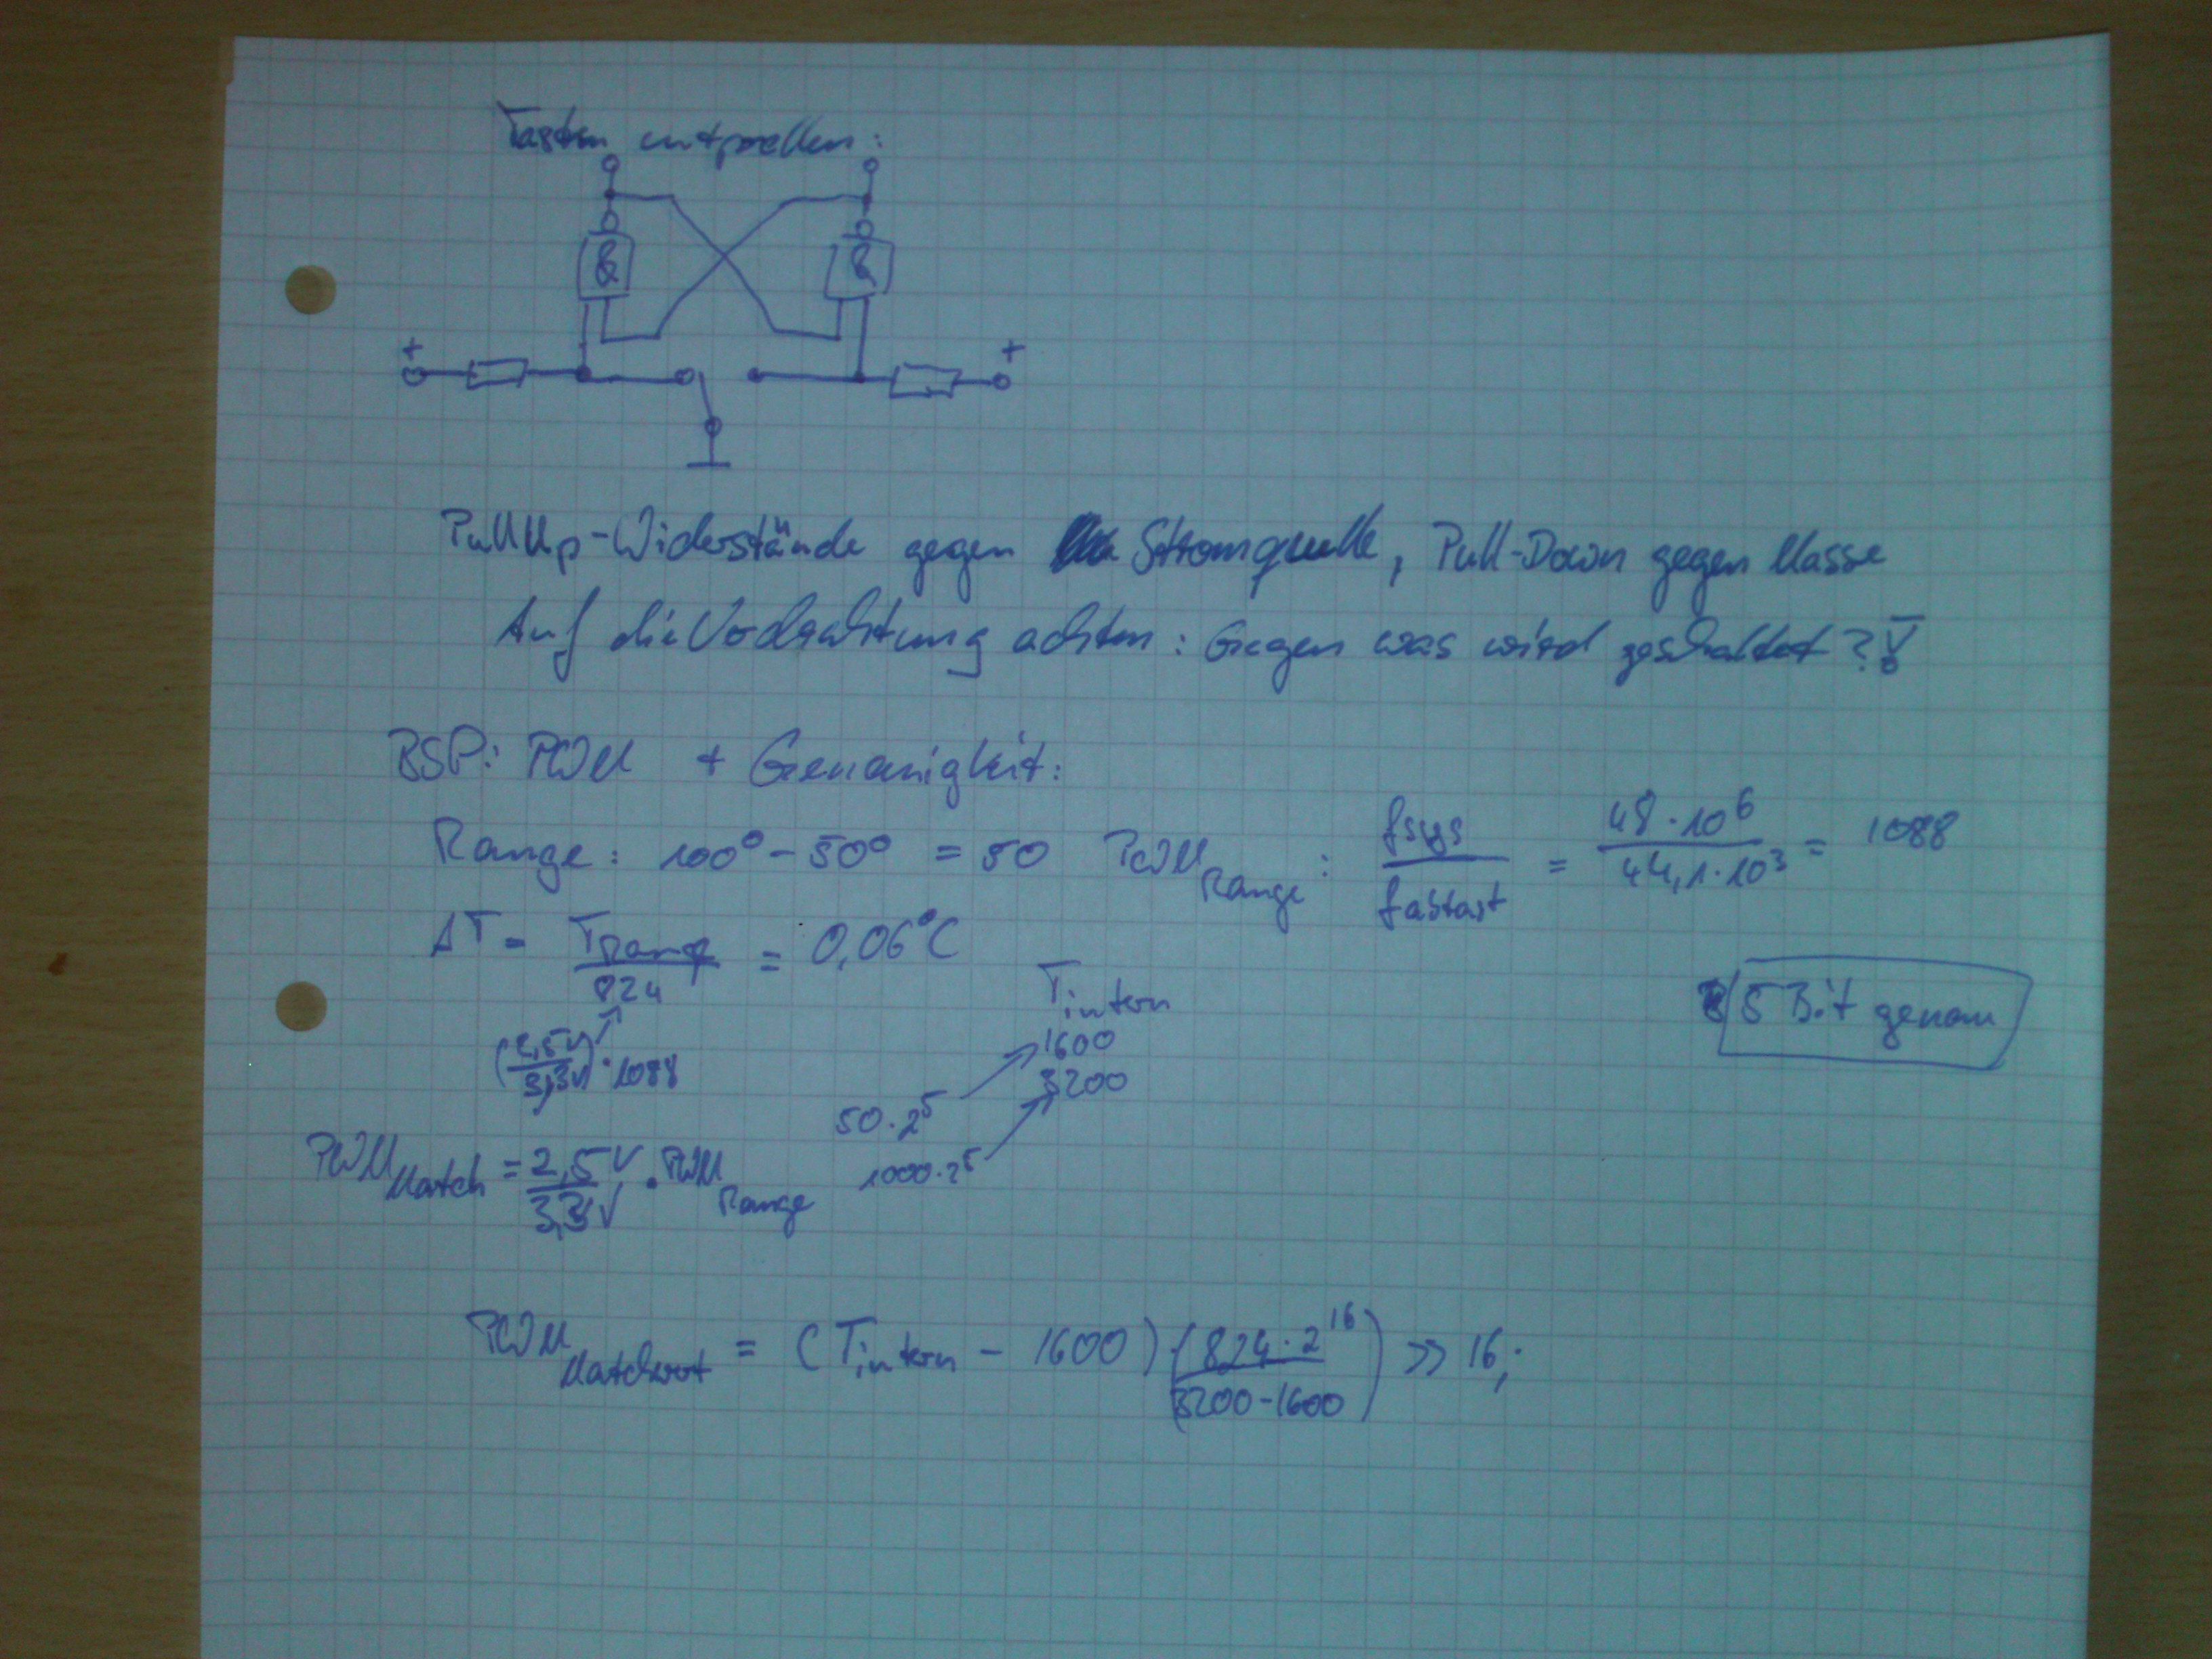 Tasten entprellen:
& &
+ +
PullUp-Widerstände gegen Stromquelle, Pull-Down gegen Masse
Auf die Vodrahtung achten: Gegen was wird geschaltet?!
BSP: PWM + Genauigkeit:
Range: 100° - 50° = 50 PWM Range : fsys / fabtast = 48·10^6 / 44,1·10^3 = 1088
ΔT = TRange / 824 = 0,06°C
5 Bit genau
(2,5V / 3,3V) · 1088
Tintern
1600
3200
50·2^5
1000·2^5
PWM Match = 2,5V / 3,3V · PWM Range
PWM = (Tintern - 1600) · (824·2^16 / 3200-1600) >> 16;